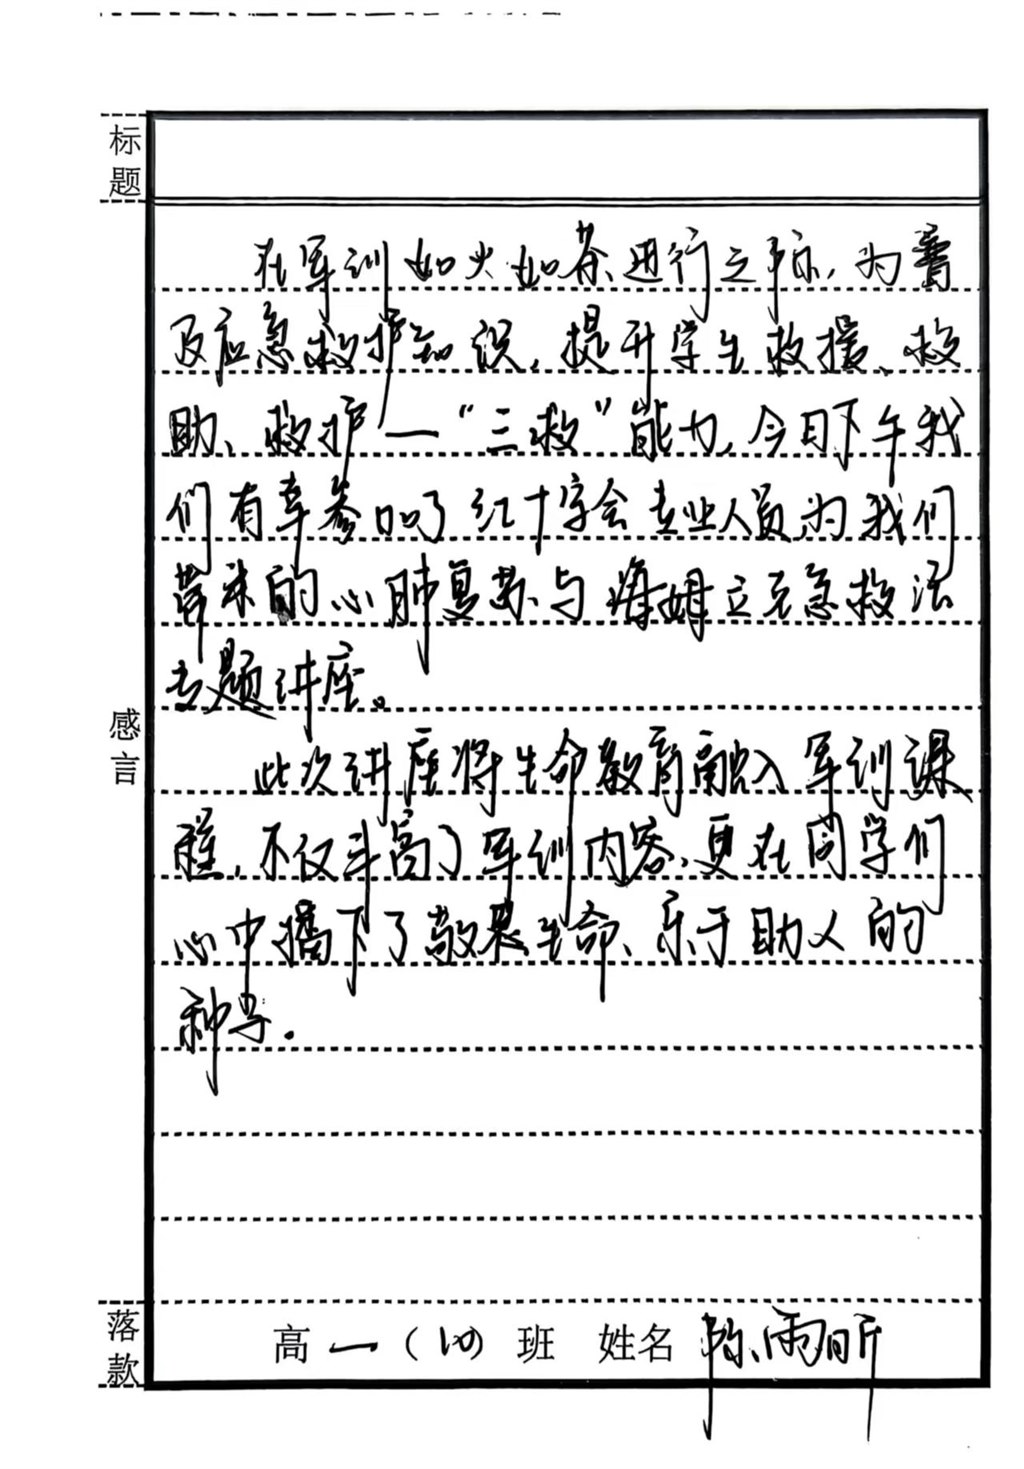 标题
在军训如火如荼进行之际，为普
及应急救护知识，提升学生救援、救
助、救护—“三救”能力，今日下午我
们有幸参加了红十字会专业人员为我们
带来的心肺复苏与海姆立克急救法
专题讲座。
感言
此次讲座将生命教育融入军训课
程，不仅丰富了军训内容，更在同学们
心中播下了敬畏生命、乐于助人的
种子。
落款
高一（10）班 姓名 陈雨昕